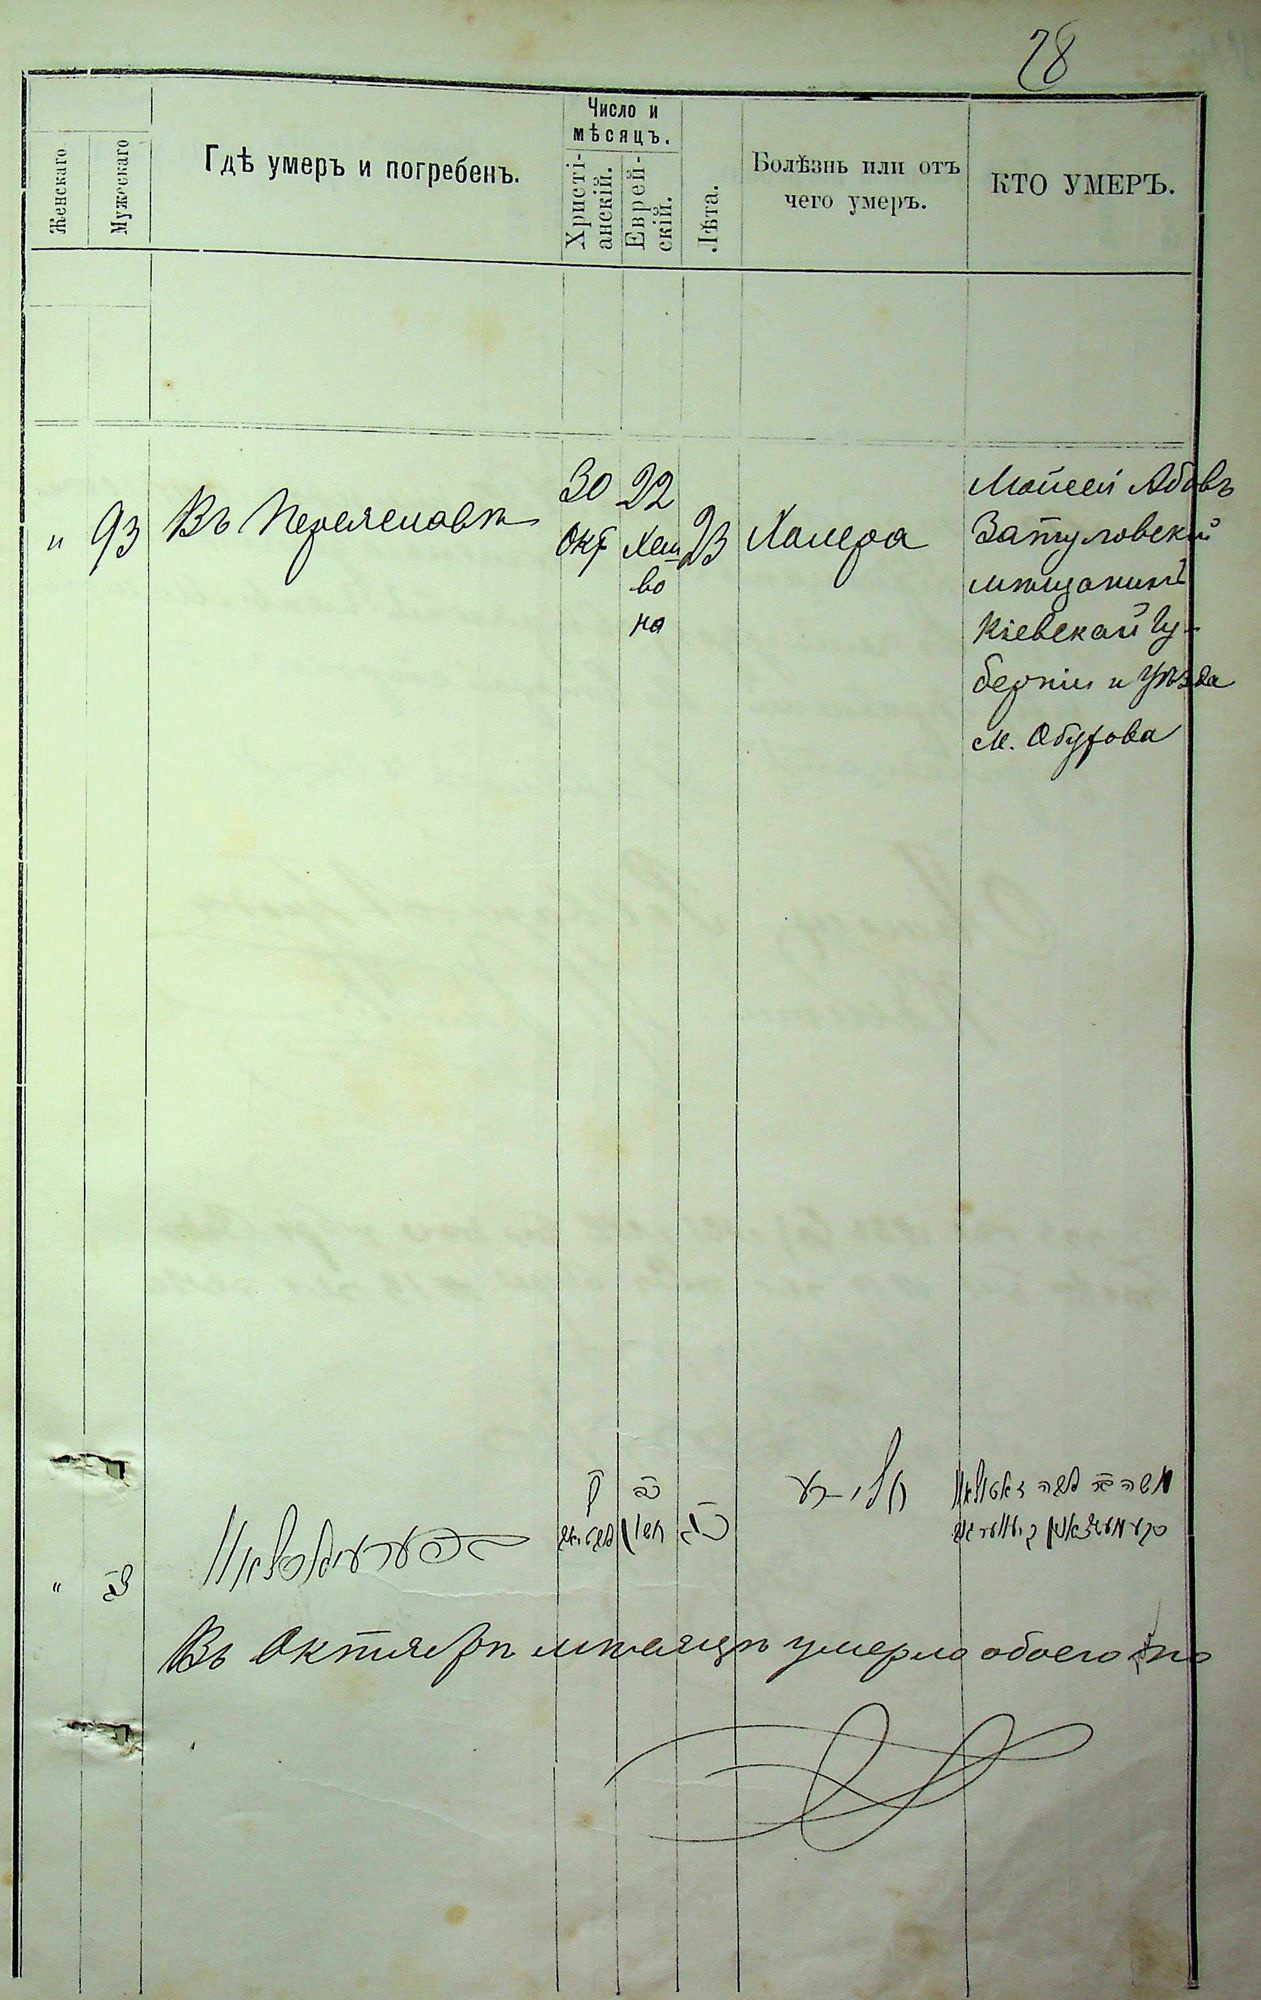 28
Женскаго
Мужескаго
Гдѣ умеръ и погребенъ.
Число и
мѣсяцъ.
Христі-
анскій.
Еврей-
скій.
Лѣта.
Болѣзнь или отъ
чего умеръ.
КТО УМЕРЪ.
" 93 Въ Переяславѣ
30
Окт
22
Хеш
во
на
23
Халера
Мойсей Абовъ
Затуловский
мѣщанинъ
Кіевской Гу-
берніи и Уѣзда
м. Обухова
חלירע
"
כב
חשון
כג
משה
Въ Октябрѣ мѣсяцѣ умерло обоего по